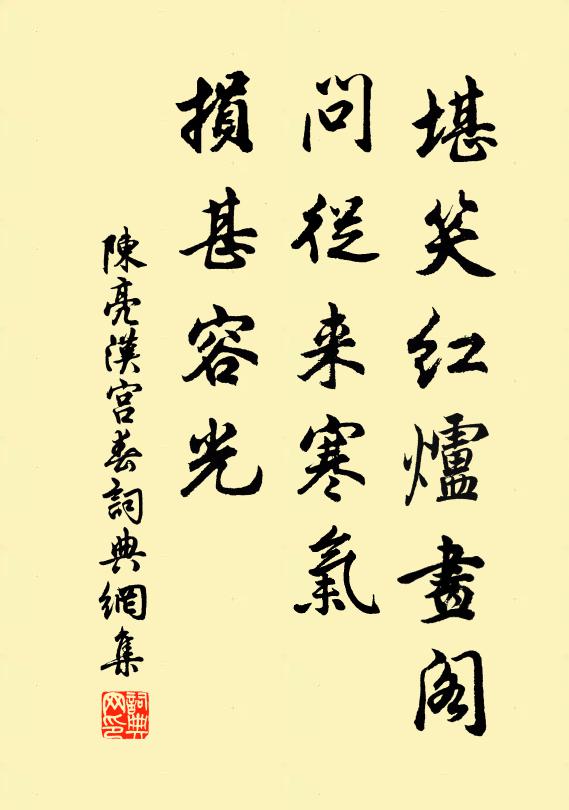 堪笑红爐畫阁
問從来寒氣
損甚容光
陳亮漢宫春詞典網集
詞典网印